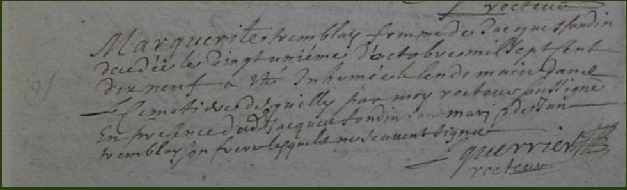 recteur
Marguerite tremblay femme de Jacques fondin
decedée le vingtuniéme d'octobre mil sept sent
dix neuf a esté Inhumée le lendemain dans
le Cemetiere desquelly par moy recteur soussigné
En presence dud Jacques fondin son mary & de
tremblay son frere lesquels ne scavent signer
guerrier
recteur